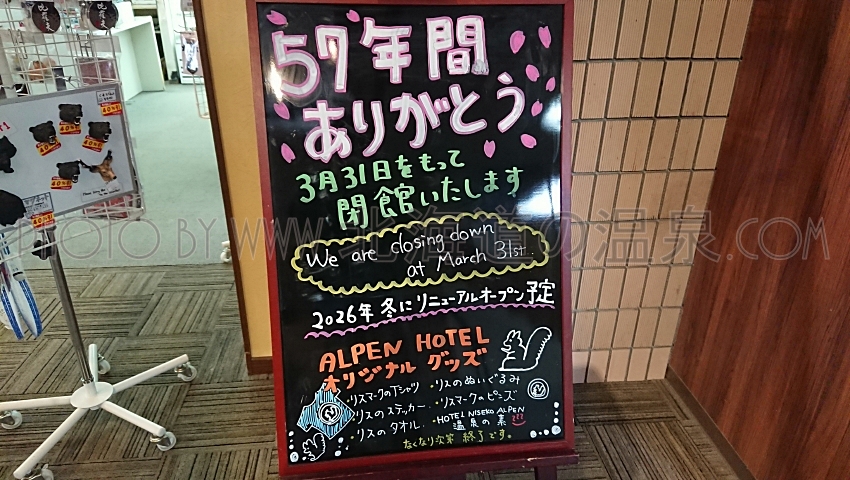 57年間
ありがとう
3月31日をもって
閉館いたします
We are closing down
at March 31st.
2026年 冬にリニューアルオープン予定
ALPEN HOTEL
オリジナル グッズ
・リスマークのTシャツ
・リスのステッカー
・リスのタオル
・リスのぬいぐるみ
・リスマークのピンズ
・HOTEL NISEKO ALPEN
温泉の素
なくなり次第 終了です。
40%引
40%引
40%引
40%引
40%引
PHOTO BY WWW.北海道の温泉.COM